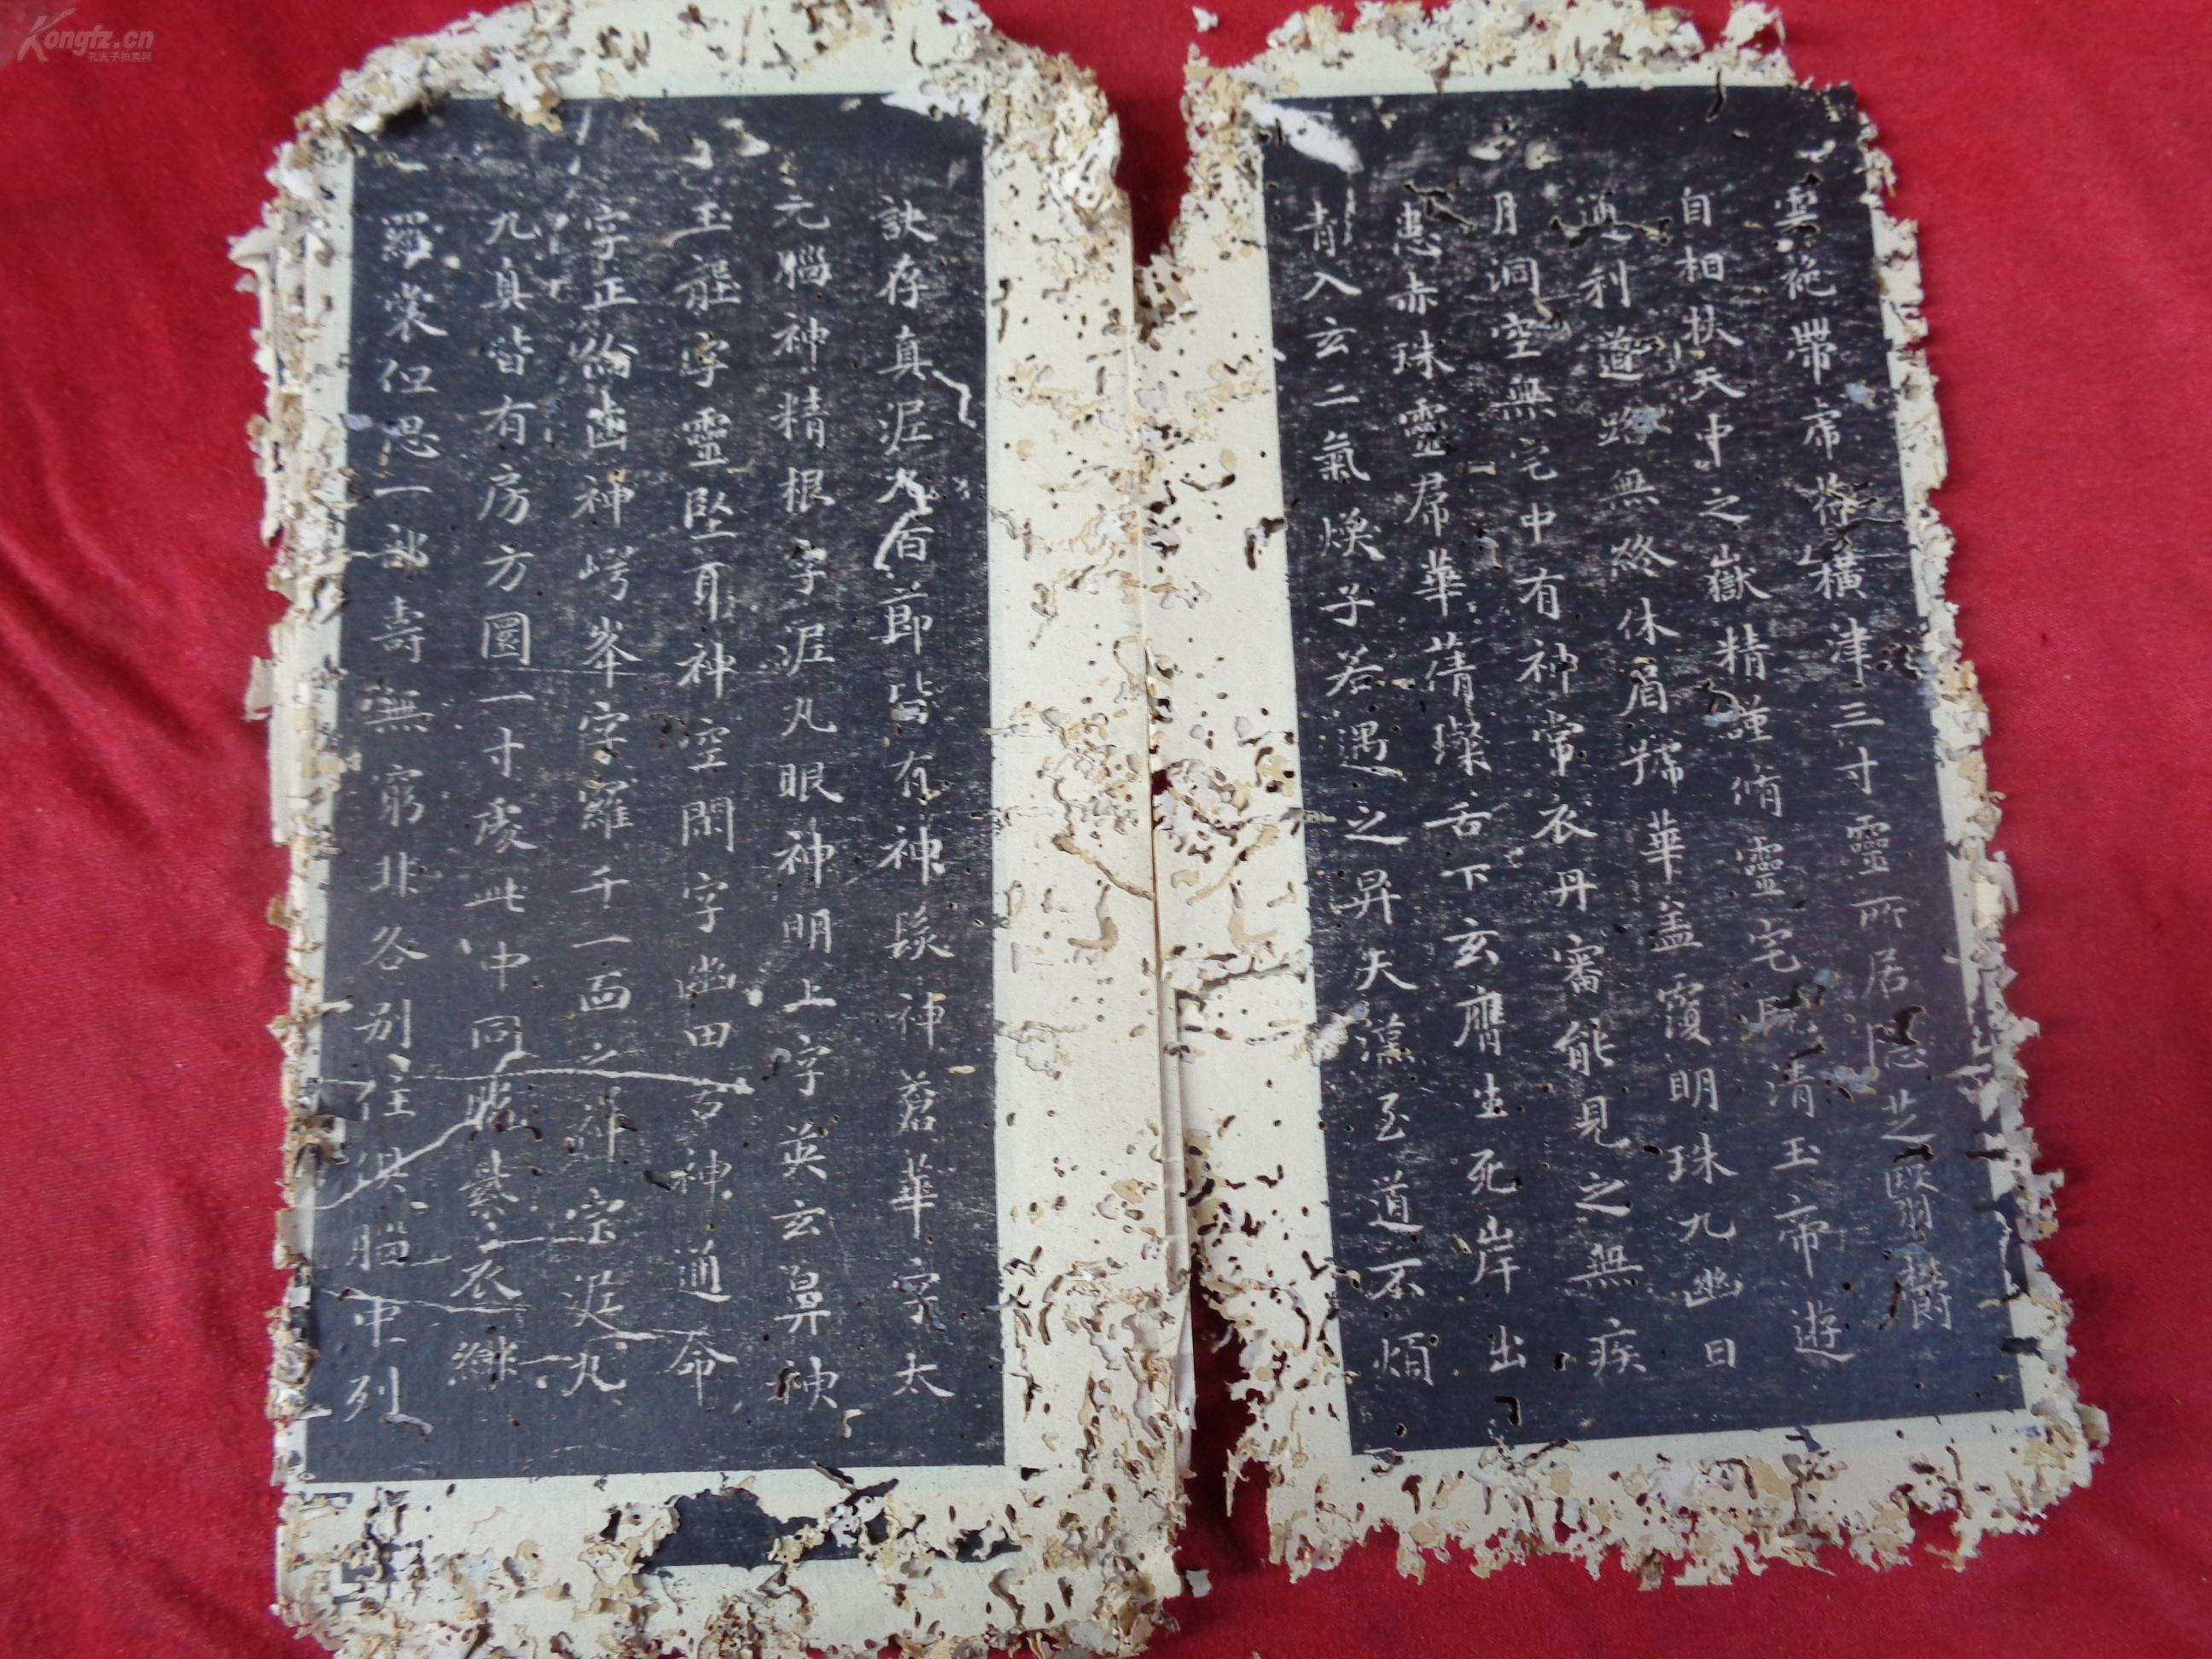 雲袍帶虎符橫津三寸靈所居隱芝翳鬱
自相扶天中之嶽精謹脩靈宅既清玉帝遊
通利道路無終休眉號華蓋覆明珠九幽日
月洞空無宅中有神常衣丹審能見之無疾
患赤珠靈帬華蒨璨舌下玄膺生死岸出
青入玄二氣煥子若遇之昇天漢至道不煩
訣存真泥丸百節皆有神髮神蒼華字太
元腦神精根字泥丸眼神明上字英玄鼻神
玉壟字靈堅耳神空閑字幽田舌神通命
字正綸齒神崿峯字羅千一面之神宗泥丸
九真皆有房方圓一寸處此中同服紫衣緋
羅裳但思一部壽無窮非各別住俱腦中列
Kongfz.cn
孔夫子拍卖网